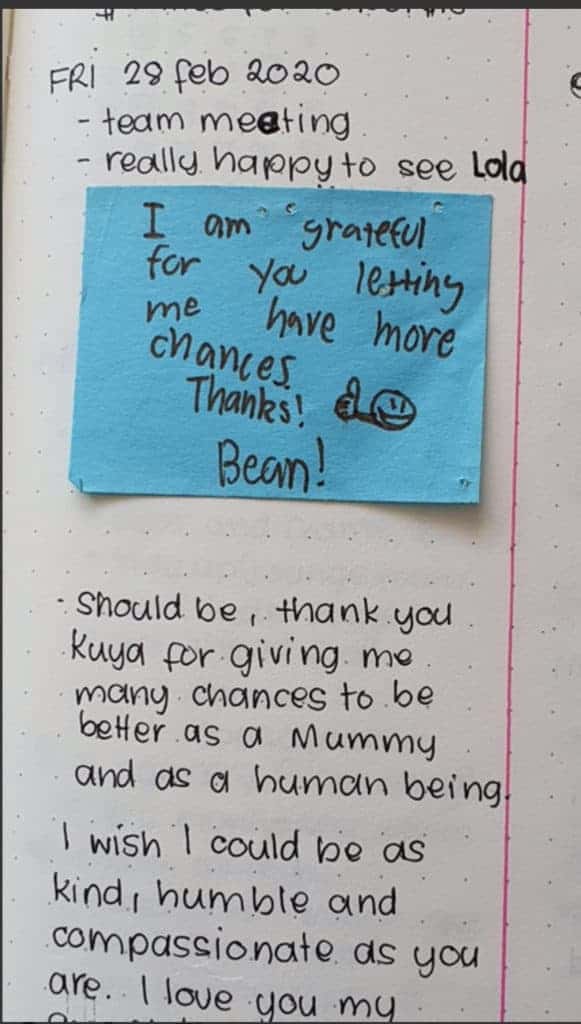 FRI 28 feb 2020
- team meeting
- really happy to see Lola
I am "grateful"
for you letting
me have more
chances
Thanks!
Bean!
- Should be, thank you
Kuya for giving me
many chances to be
better as a Mummy
and as a human being.
I wish I could be as
kind, humble and
compassionate as you
are. I love you my